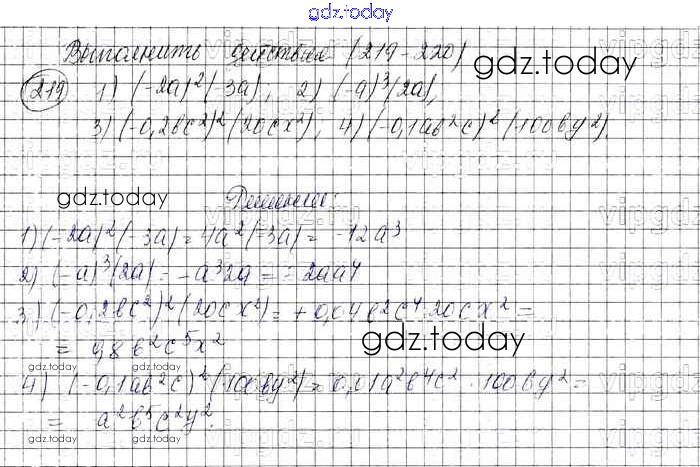 gdz.today
Выполнить действия (219-220)
gdz.today
219 1) (-2a)²(-3a), 2) (-a)³(2a),
3) (-0,2bc²)²(20cx²), 4) (-0,1ab²c)²(100by²).
gdz.today
Решение:
1) (-2a)²(-3a) = 4a²(-3a) = -12a³
2) (-a)³(2a) = -a³2a = -2aa4
3) (-0,2bc²)²(20cx²) = +0,04b²c⁴·20cx² =
= 0,8b²c⁵x²
gdz.today
gdz.today
4) (-0,1ab²c)²(100by²) = 0,01a²b⁴c² · 100by² =
= a²b⁵c²y².
gdz.today
gdz.today